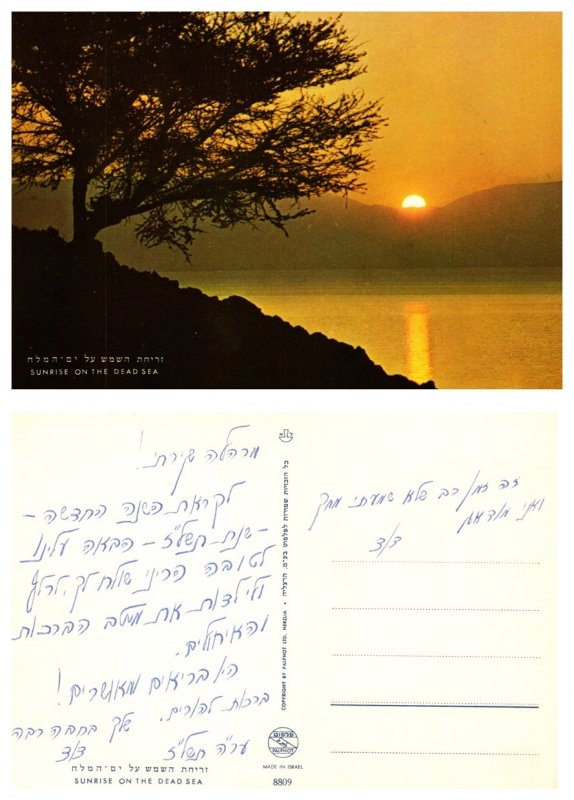 זריחת השמש על ים-המלח
SUNRISE ON THE DEAD SEA
יקירתי!
לקראת השנה החדשה -
- שנת תשל"ג - הבאה עלינו
לטובה הריני שולח לך,
ולילדות את מיטב הברכות
והאיחולים.
היו בריאים ומאושרים!
ברכות להורים. שלך בחבה רבה
ער"ה תשל"ג
זריחת השמש על ים-המלח
SUNRISE ON THE DEAD SEA
כל הזכויות שמורות לפלפוט בע"מ. הרצליה •
COPYRIGHT BY PALPHOT LTD. HERZLIA
פלפוט
PALPHOT
MADE IN ISRAEL
8809
זה זמן רב שלא שמעתי ממך
ואני מודאג